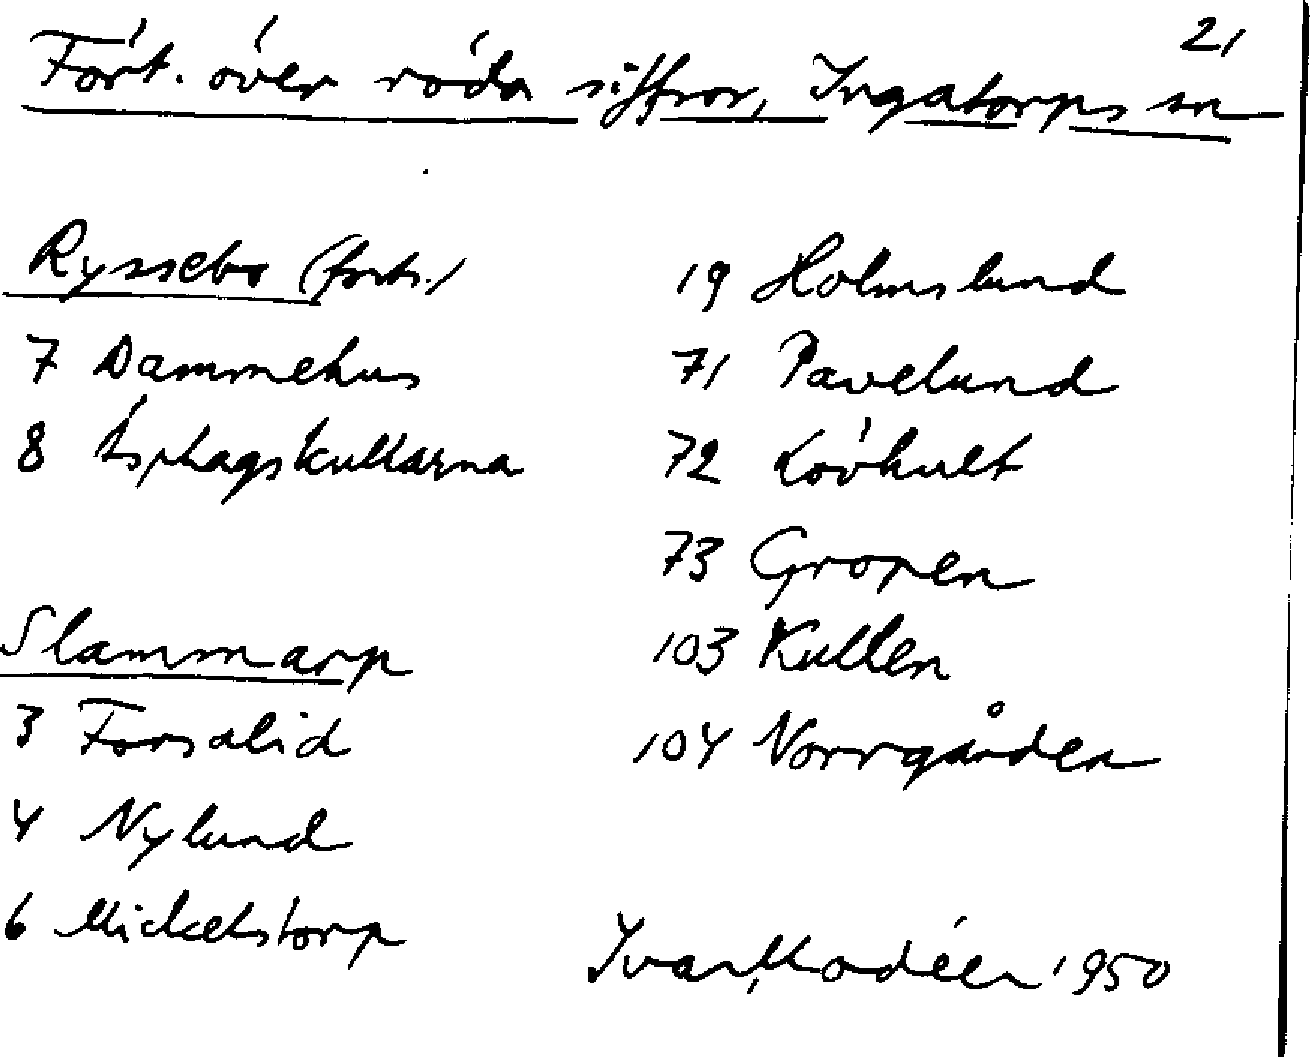 21
Fört. över röda siffror, Ingatorps sn
Ryssebo (forts.)
7 Dammehus
8 Åsphagskullarna
Slammarp
3 Forsalid
4 Nylund
6 Mickelstorp
19 Holmslund
71 Pavelund
72 Lövhult
73 Gropen
103 Kullen
104 Norrgården
Ivar Modéer 1950